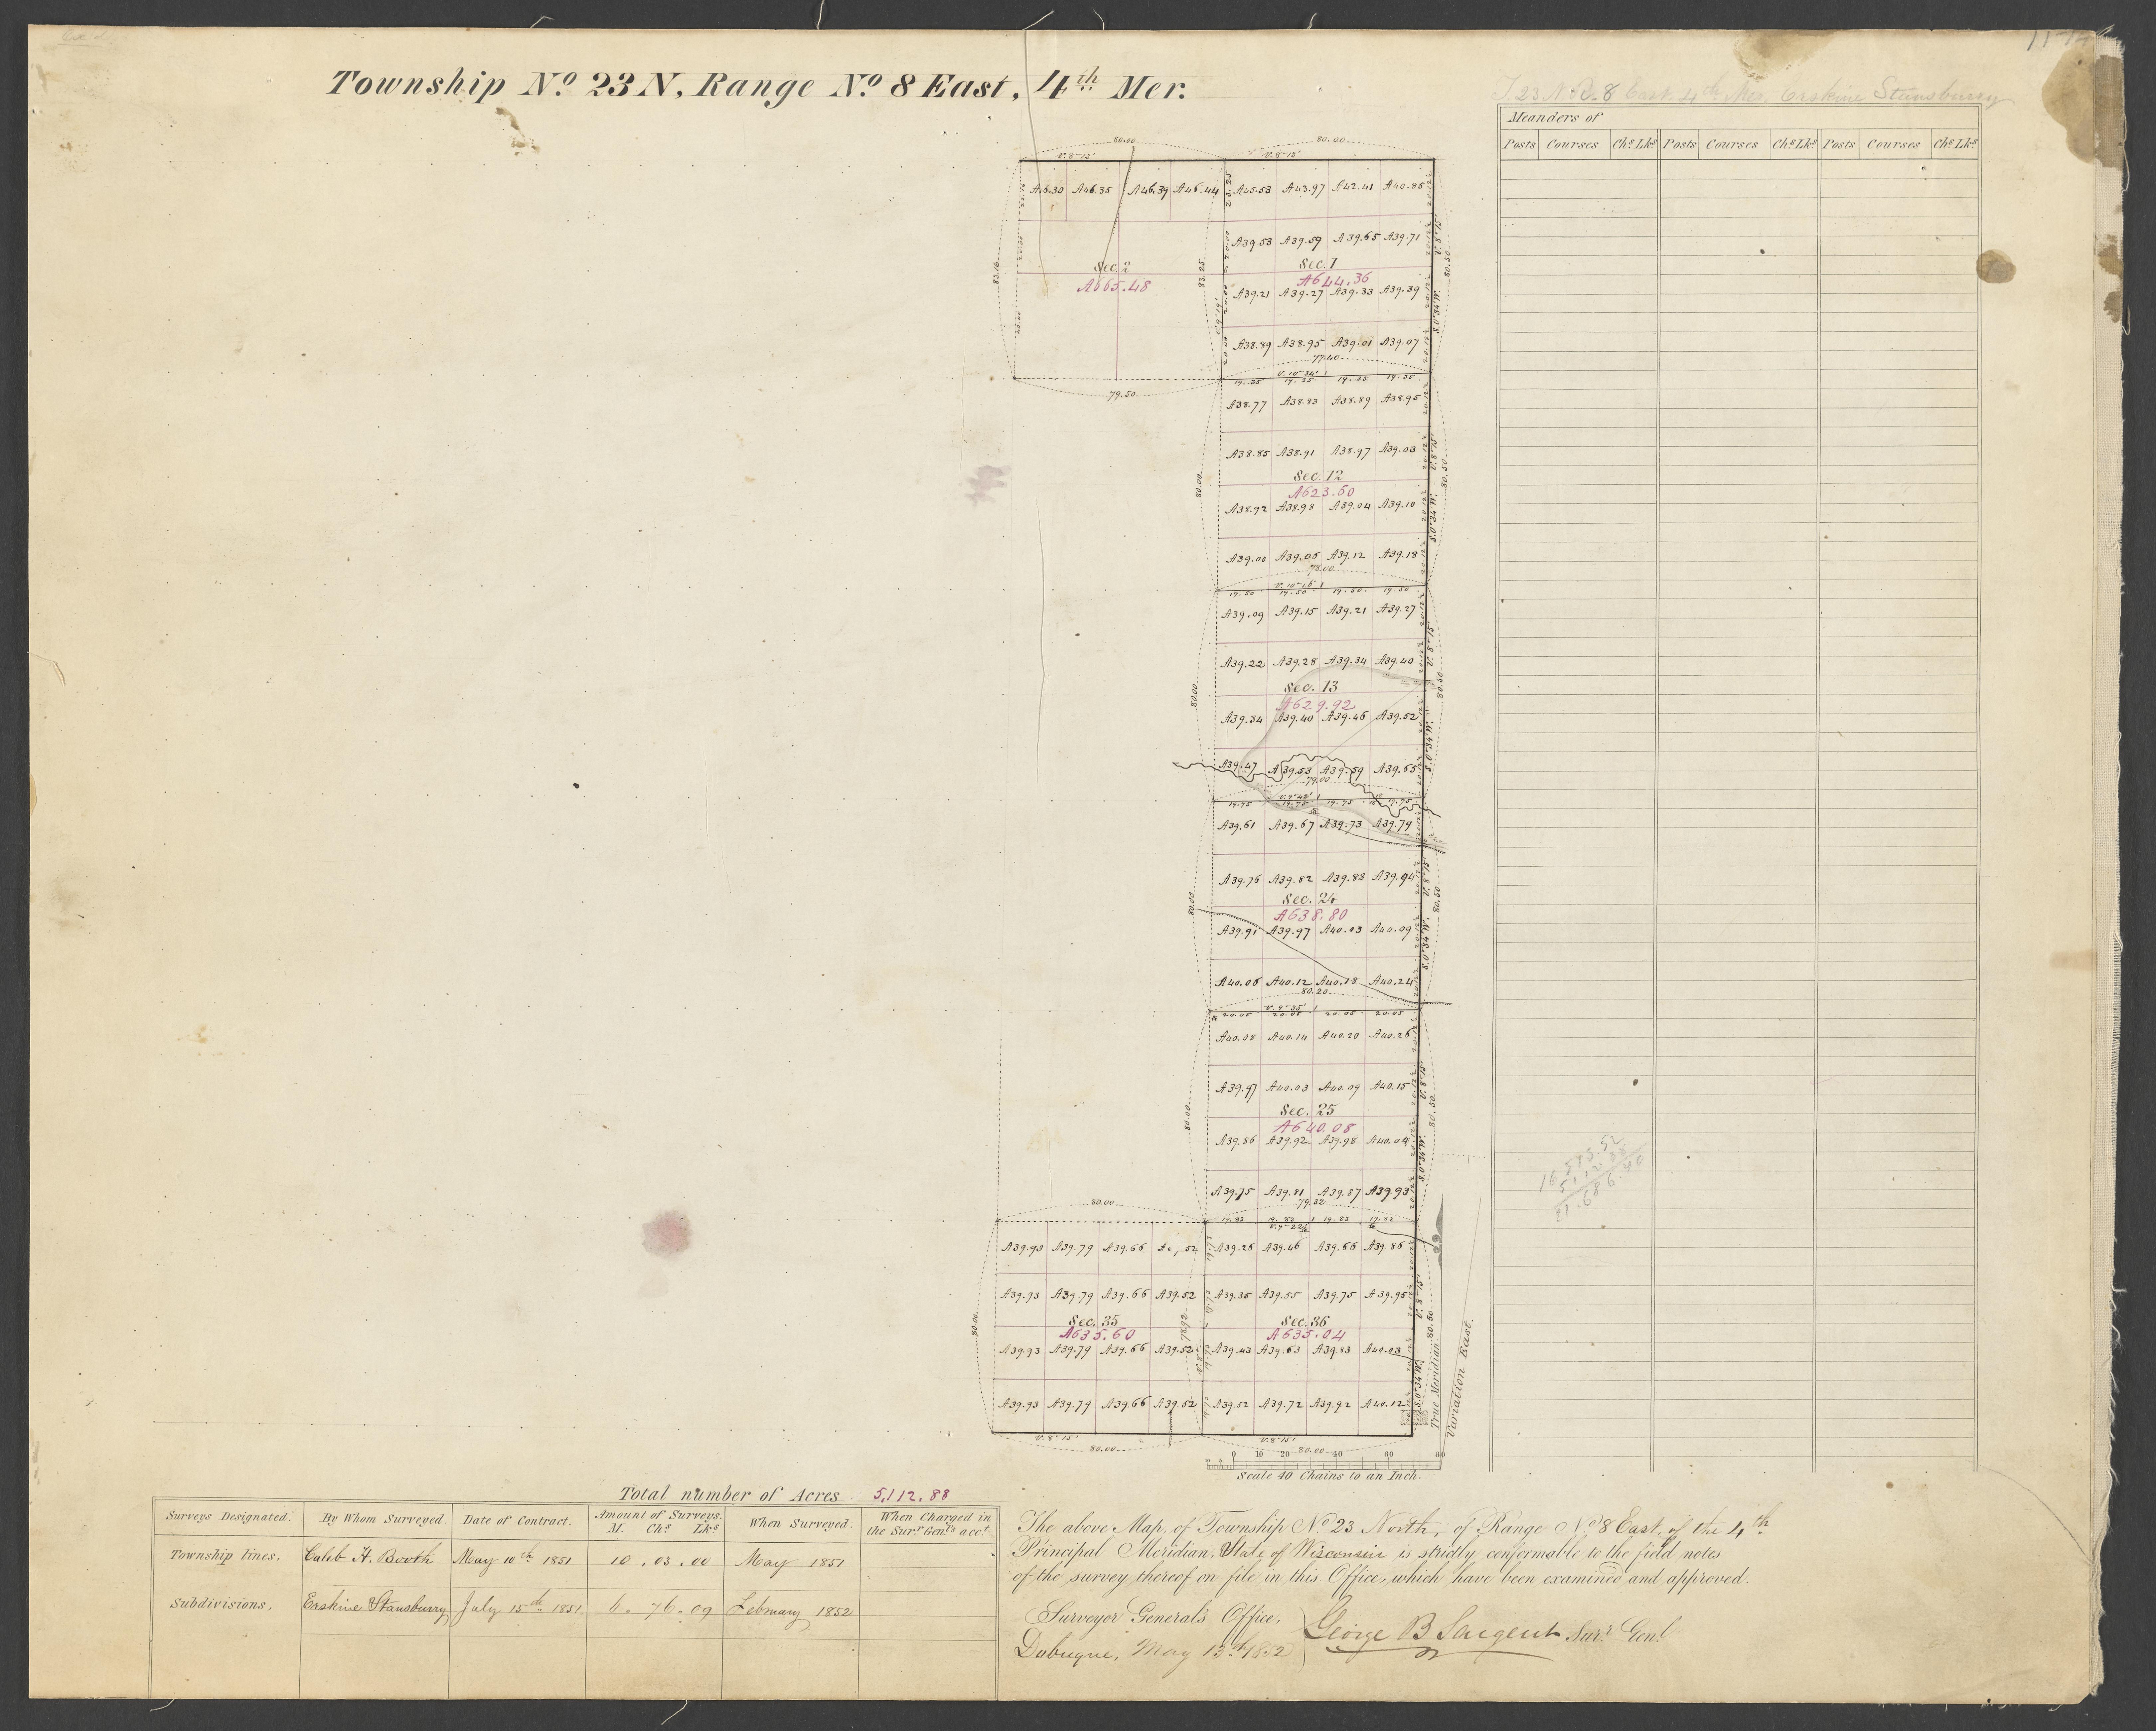 Township Nº 23 N, Range Nº 8 East, 4th Mer.
T 23 N R. 8 East 4th Mer. Erskine Stansburry
Meanders of
Posts Courses Chs Lks Posts Courses Chs Lks Posts Courses Chs Lks
80.00 80.00
V. 8°15' V. 8°15'
A46.30 A46.35 A46.39 A46.44 A45.53 A43.97 A42.41 A40.85
A39.53 A39.59 A39.65 A39.71
Sec. 2 Sec. 1
A665.48 A644.36
A39.21 A39.27 A39.33 A39.39
83.25 80.50
A38.89 A38.95 A39.01 A39.07
77.40
V. 10°34'
19.35 19.35 19.35 19.35
79.50
A38.77 A38.83 A38.89 A38.95
A38.85 A38.91 A38.97 A39.03
Sec. 12
80.00 80.50
A623.60
A38.92 A38.98 A39.04 A39.10
A39.00 A39.06 A39.12 A39.18
78.00
V. 10°16'
19.50 19.50 19.50 19.50
A39.09 A39.15 A39.21 A39.27
A39.22 A39.28 A39.34 A39.40
Sec. 13
80.00 80.50
A629.92
A39.34 A39.40 A39.46 A39.52
A39.47 A39.53 A39.59 A39.65
79.00
V. 9°42'
19.75 19.75 19.75 19.75
A39.61 A39.67 A39.73 A39.79
A39.76 A39.82 A39.88 A39.94
Sec. 24
80.00 80.50
A638.80
A39.91 A39.97 A40.03 A40.09
A40.06 A40.12 A40.18 A40.24
80.20
V. 9°35'
20.05 20.05 20.05 20.05
A40.08 A40.14 A40.20 A40.26
A39.97 A40.03 A40.09 A40.15
Sec. 25
80.00 80.50
A640.08
A39.86 A39.92 A39.98 A40.04
A39.75 A39.81 A39.87 A39.93
80.00 79.32
19.83 19.83 19.83 19.83
A39.93 A39.79 A39.66 A39.26 A39.46 A39.66 A39.86
A39.93 A39.79 A39.66 A39.52 A39.35 A39.55 A39.75 A39.95
Sec. 35 Sec. 36
80.00 78.92 80.50
A635.60 A635.04
A39.93 A39.79 A39.66 A39.52 A39.43 A39.63 A39.83 A40.03
A39.93 A39.79 A39.66 A39.52 A39.52 A39.72 A39.92 A40.12
V. 8°15' V. 8°15'
80.00 80.00
True Meridian
Variation East.
0 10 20 40 60 80
Scale 40 Chains to an Inch.
Total number of Acres 5,112.88
Surveys Designated. By Whom Surveyed. Date of Contract. Amount of Surveys. M. Chs Lks When Surveyed. When Charged in the Surr Genl's acct
Township lines. Caleb H. Booth May 10th 1851 10 . 03 . 00 May 1851
Subdivisions. Erskine Stansburry July 15th 1851 6 . 76 . 09 February 1852
The above Map, of Township Nº 23 North, of Range Nº 8 East, of the 4th
Principal Meridian, State of Wisconsin is strictly conformable to the field notes
of the survey thereof on file in this Office, which have been examined and approved.
Surveyor General's Office,
Dubuque, May 13th 1852
George B Sargent Surr Genl